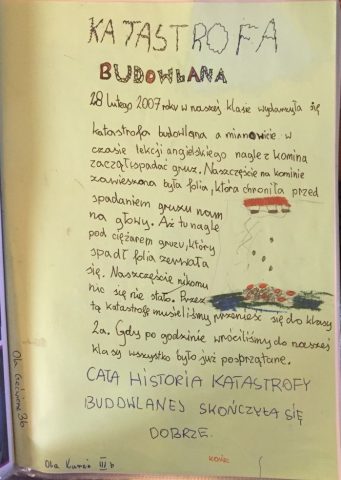 KATASTROFA
BUDOWLANA
28 lutego 2007 roku w naszej klasie wydarzyła się
katastrofa budowlana a mianowicie w
czasie lekcji angielskiego nagle z komina
zaczął spadać gruz. Naszczęście na kominie
zawieszona była folia, która chroniła przed
spadaniem gruzu nam
na głowy. Aż tu nagle
pod ciężarem gruzu, który
spadł folia zerwała
się. Naszczęście nikomu
nic się nie stało. Przez
tą katastrofę musieliśmy przenieść się do klasy
2a. Gdy po godzinie wróciliśmy do naszej
klasy wszystko było już posprzątane.
CAŁA HISTORIA KATASTROFY
BUDOWLANEJ SKOŃCZYŁA SIĘ
DOBRZE.
Ola
3b
Ola
III b